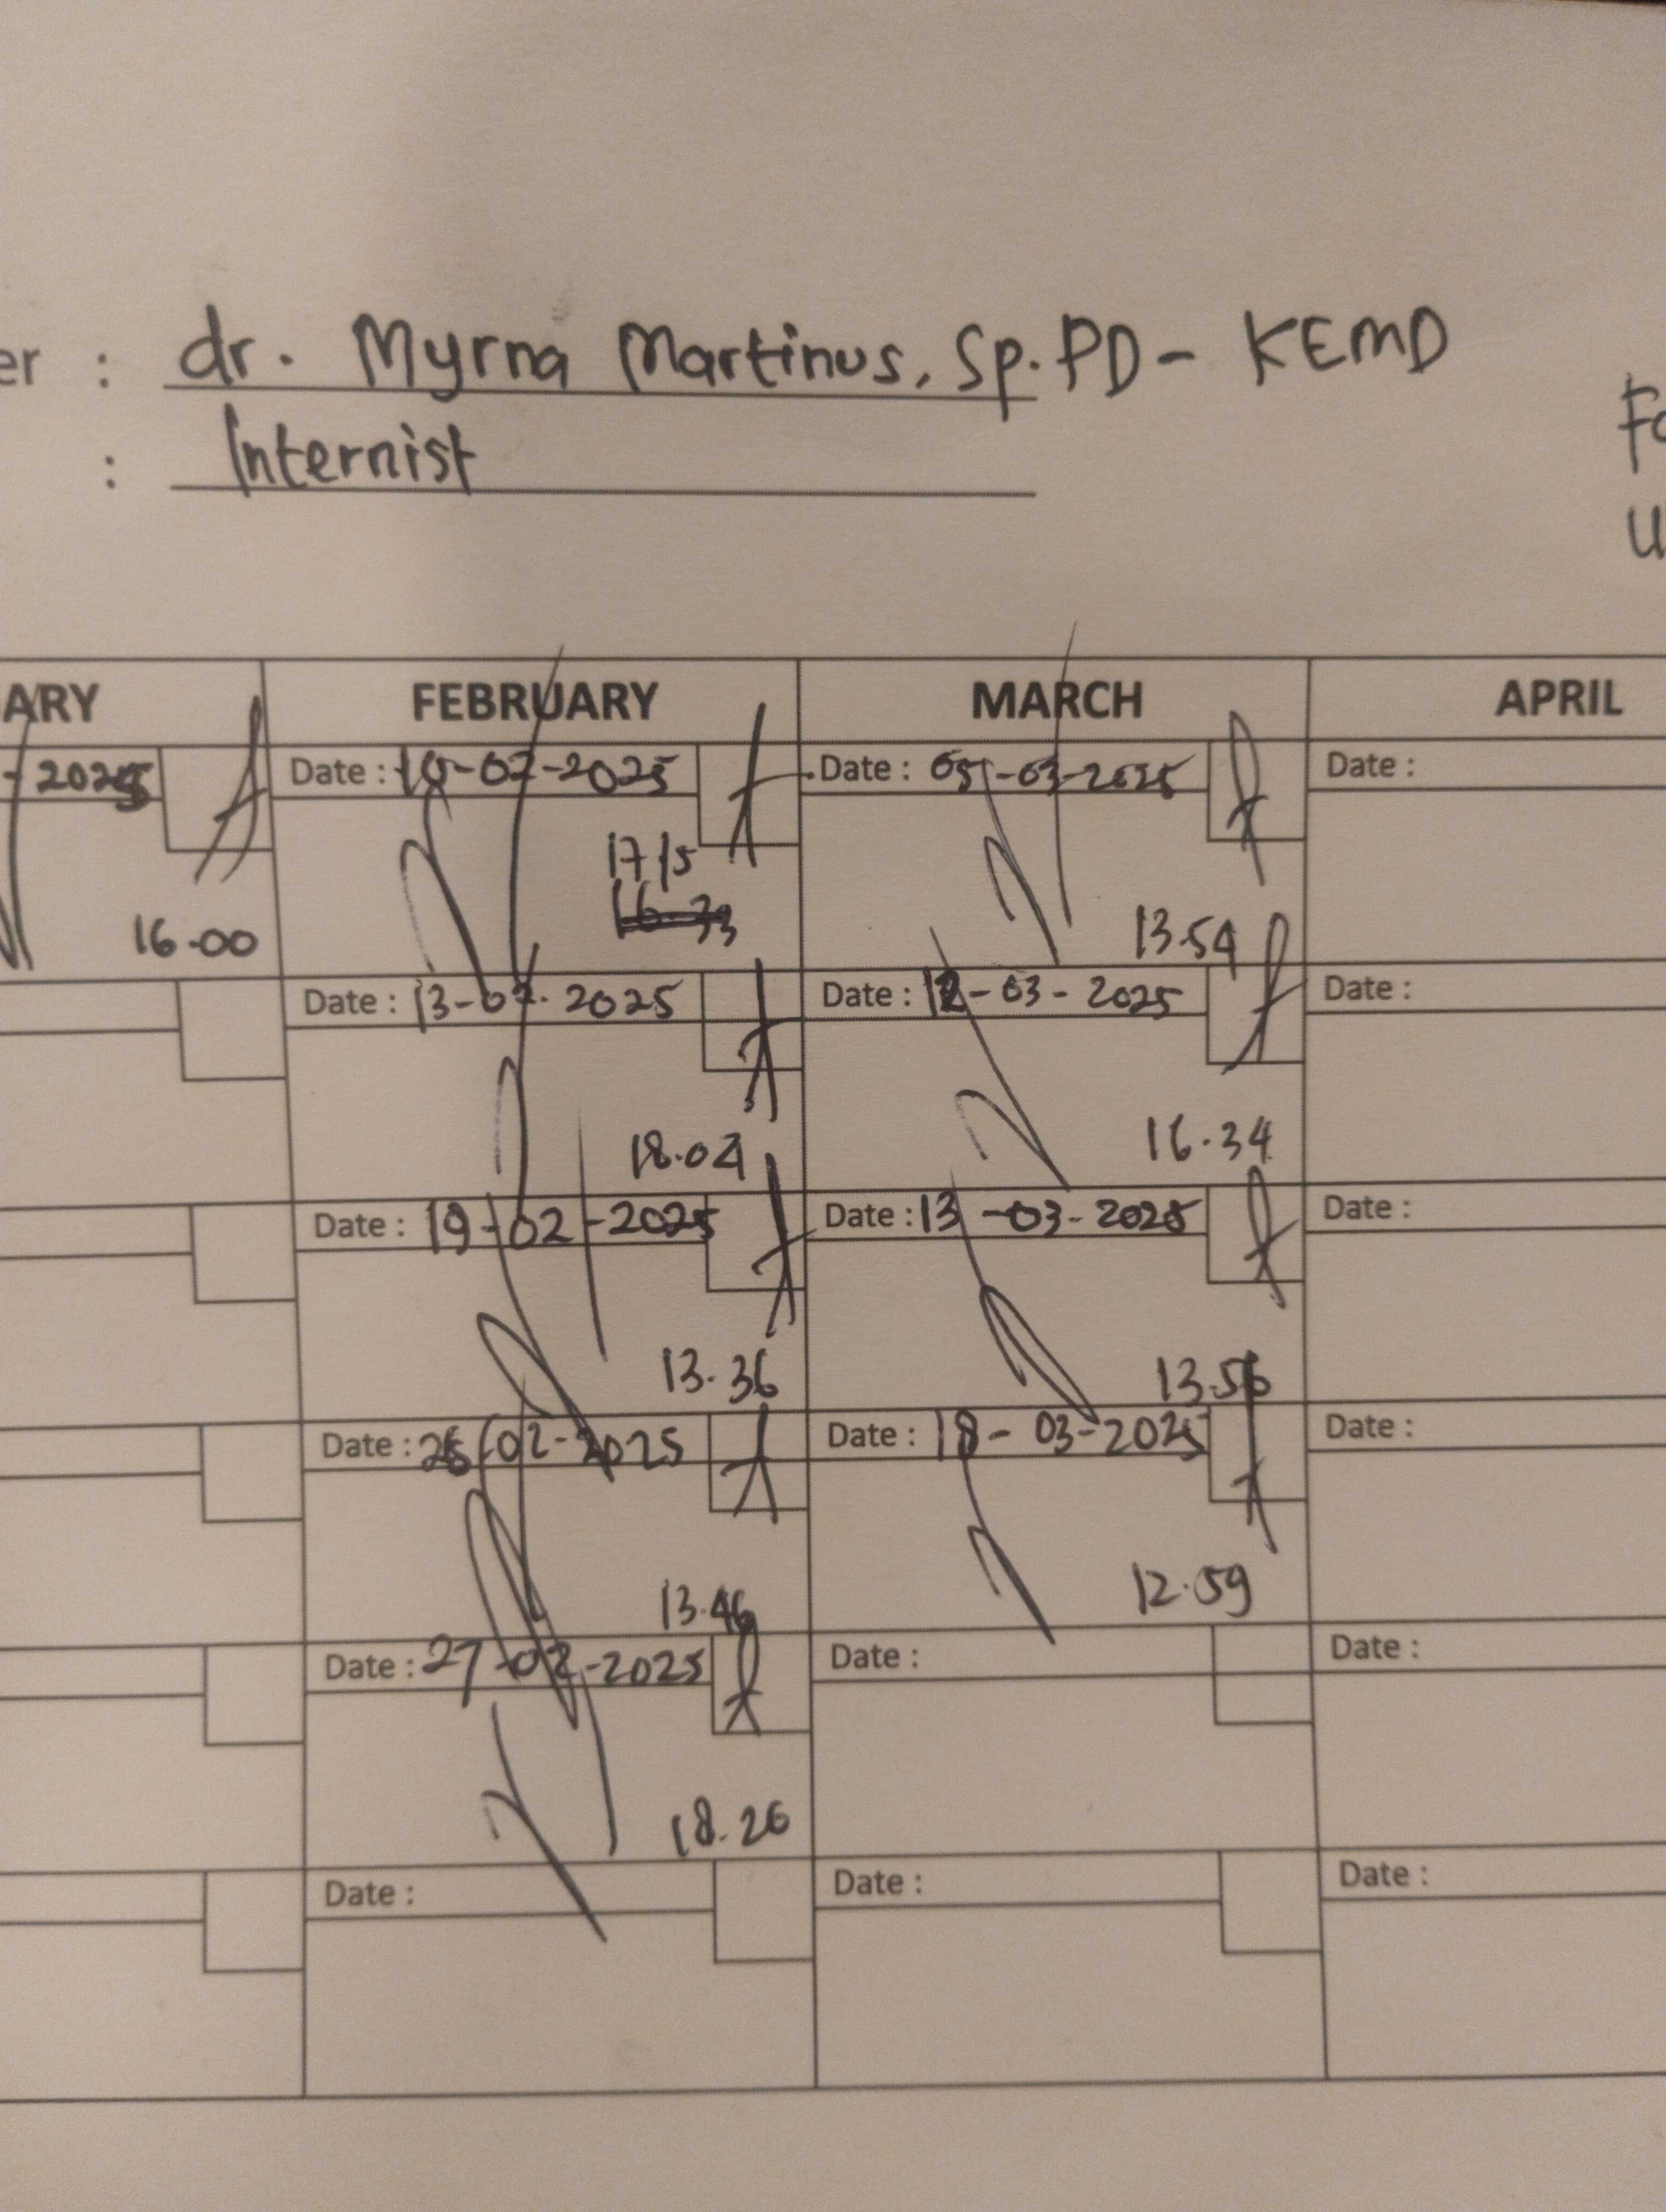 er : dr. Myrna Martinus, Sp.PD - KEMD
: Internist
ARY FEBRUARY MARCH APRIL
- 2025 Date : 10-02-2025 Date : 05-03-2025 Date :
17/15
16.33
16.00 13.54
Date : 13-02-2025 Date : 12-03-2025 Date :
18.04 16.34
Date : 19-02-2025 Date : 13-03-2025 Date :
13.36 13.56
Date : 26-02-2025 Date : 18-03-2025 Date :
13.46 12.59
Date : 27-02-2025 Date : Date :
18.26
Date : Date : Date :